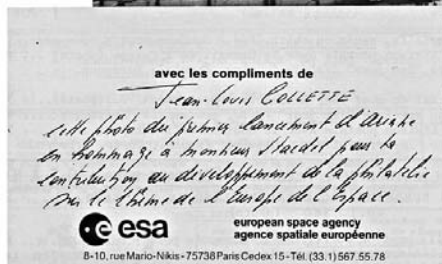 avec les compliments de
Jean-Louis COLLETTE
cette photo du premier lancement d'Ariane
en hommage à monsieur pour sa
contribution au développement de la philatélie
sur le thème de l'Europe de l'Espace.
esa
european space agency
agence spatiale européenne
8-10, rue Mario-Nikis - 75738 Paris Cedex 15 - Tél. (33.1) 567.55.78